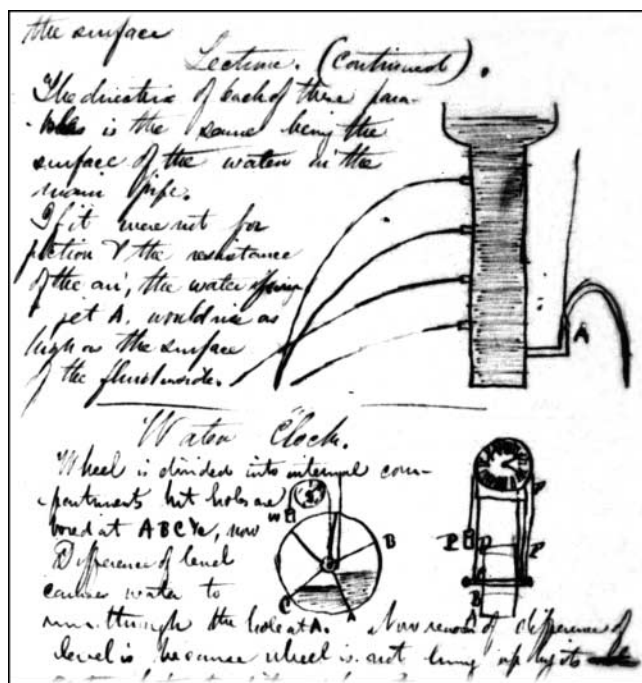 the surface
Lecture. (Continued).
The directrix of each of these para-
-bolas is the same being the
surface of the water in the
main pipe.
If it were not for
friction & the resistance
of the air, the water
jet A. would rise as
high as the surface
of the fluid inside.
A
Water Clock.
Wheel is divided into internal com-
-partments but holes are
bored at ABC &c, now
Difference of level
causes water to
run through the hole at A. Now reason of difference of
level is because wheel is not
W
B
C
A
P
P
B